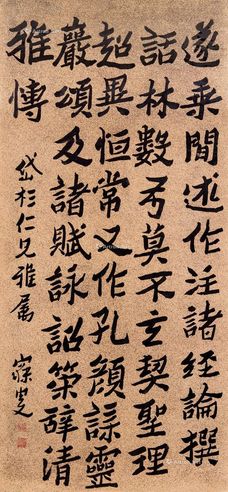 遂乘閒述作注諸經論撰
話林數弓莫不玄契聖理
超異恒常又作孔顏誄靈
巖頌及諸賦詠詔策辭清
雅博
岱杉仁兄雅屬
寐叟